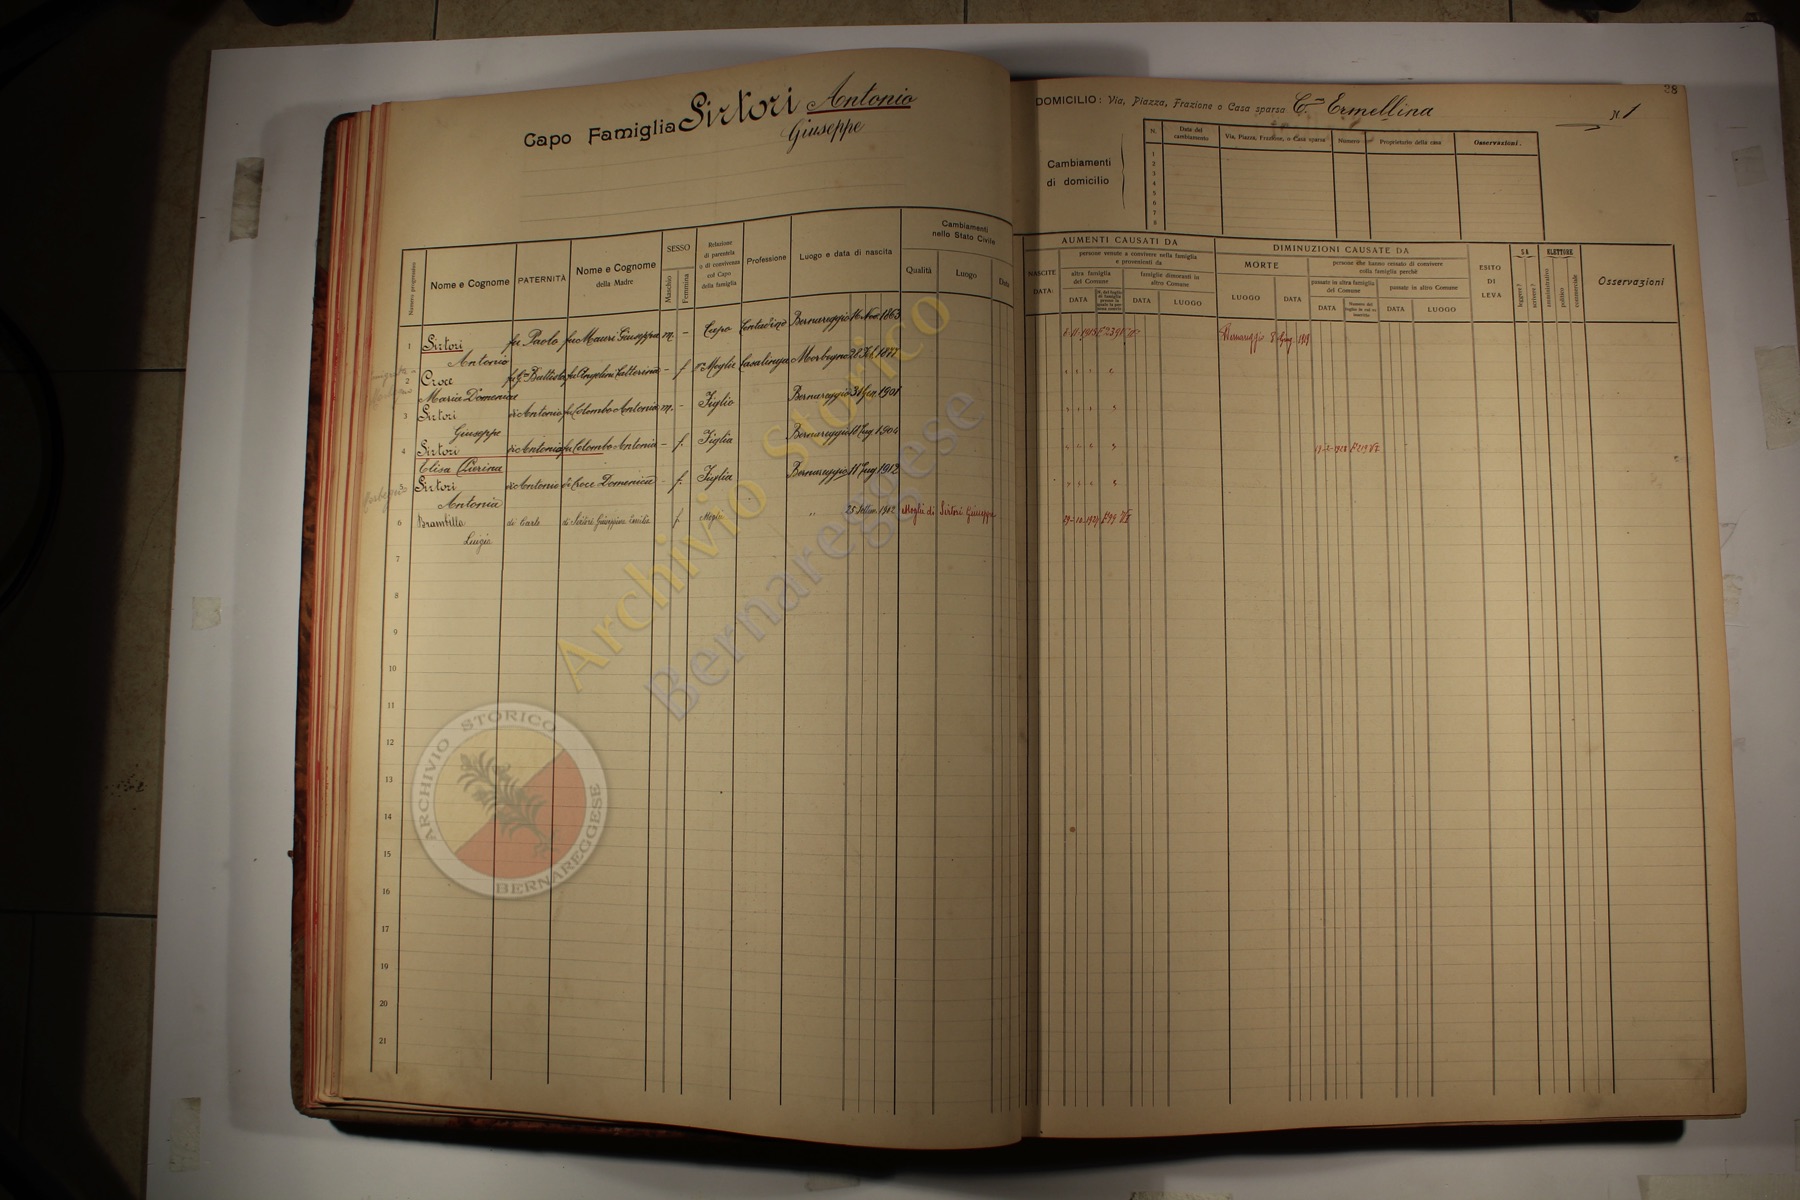 Capo Famiglia Sirtori Antonio
Giuseppe
DOMICILIO: Via, Piazza, Frazione o Casa sparsa C.na Ermellina N. 1
28
Cambiamenti
di domicilio
N. Data del cambiamento Via, Piazza, Frazione, o Casa sparsa Numero Proprietario della casa Osservazioni.
1
2
3
4
5
6
7
8
Numero progressivo
Nome e Cognome
PATERNITÀ
Nome e Cognome
della Madre
SESSO
Maschio
Femmina
Relazione
di parentela
o di convivenza
col Capo
della famiglia
Professione
Luogo e data di nascita
Cambiamenti
nello Stato Civile
Qualità Luogo Data
NASCITE
DATA
AUMENTI CAUSATI DA
persone venute a convivere nella famiglia
e provenienti da
altra famiglia
del Comune
famiglie dimoranti in
altro Comune
DATA
DATA LUOGO
DIMINUZIONI CAUSATE DA
MORTE
LUOGO DATA
persone che hanno cessato di convivere
colla famiglia perchè
passate in altra famiglia
del Comune
passate in altro Comune
DATA
DATA LUOGO
ESITO
DI
LEVA
SA
leggere?
scrivere?
ELETTORE
amministrativo
politico
commerciale
Osservazioni
1 Sirtori fu Paolo fu Mauri Giuseppa m. - Capo Contadino Bernareggio 16 Nov. 1863
Antonio
2 Croce fu Gio Battista fu Angelini Catterina - f Moglie Casalinga Morbegno 1877
Maria Domenica
3 Sirtori di Antonio fu Colombo Antonia m. - Figlio Bernareggio 31 1901
Giuseppe
4 Sirtori di Antonio fu Colombo Antonia - f. Figlia Bernareggio 1904
Elisa Pierina
5 Sirtori di Antonio di Croce Domenica - f. Figlia Bernareggio 11 1912
Antonia
6 Brambilla di Carlo di Sirtori Giuseppina Emilia f. Moglie " 25 1902 Moglie di Sirtori Giuseppe
Luigia
7
8
9
10
11
12
13
14
15
16
17
18
19
20
21
Archivio Storico
Bernareggese
ARCHIVIO STORICO
BERNAREGGESE